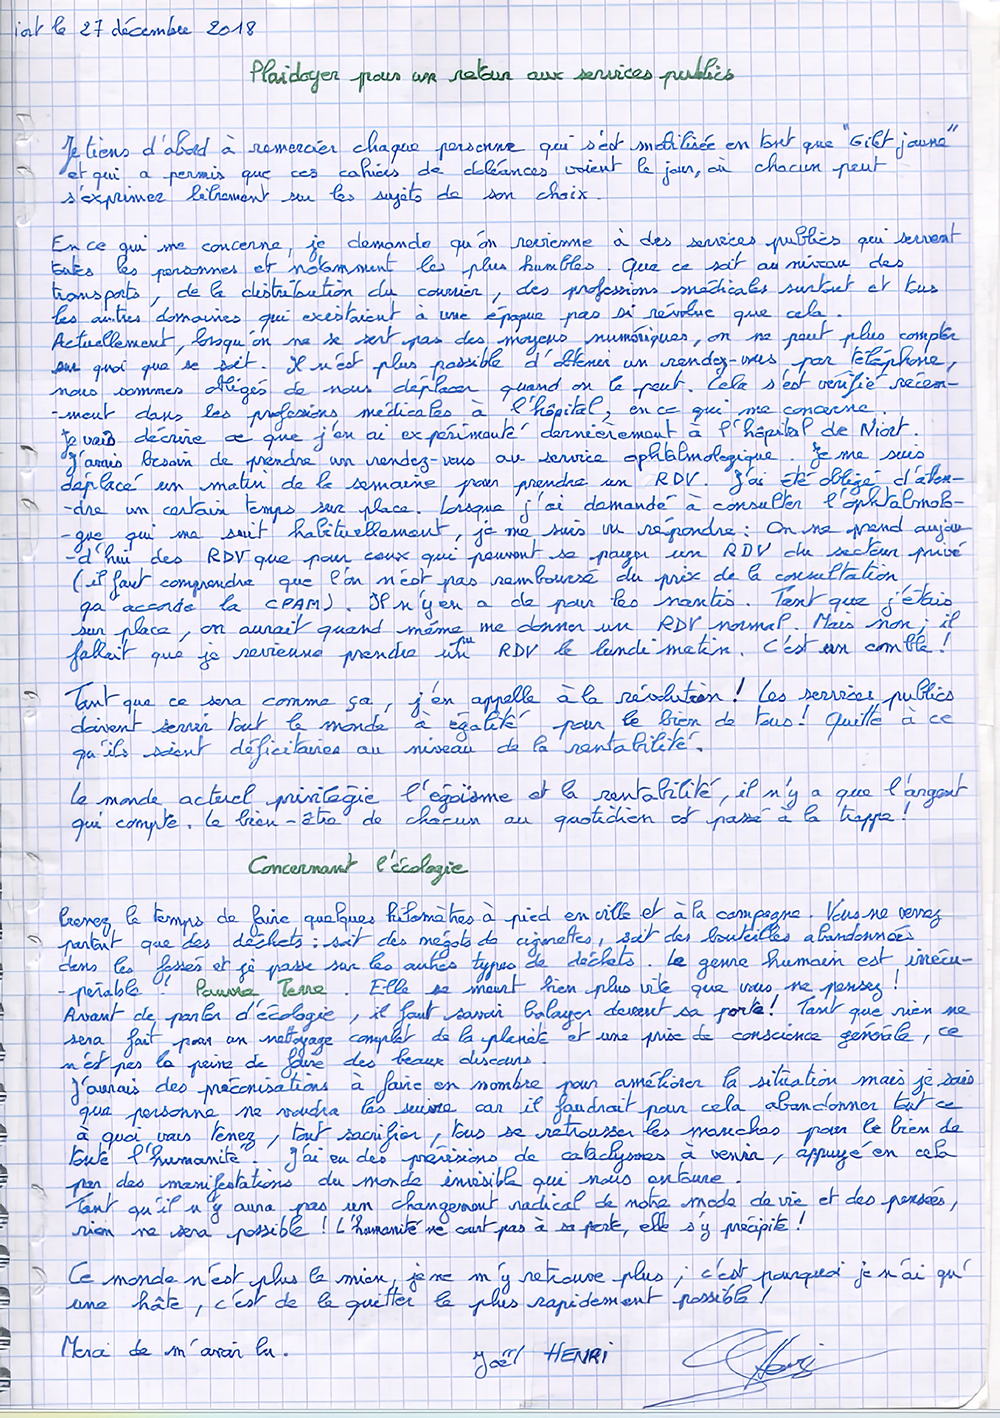 iort le 27 décembre 2018
Plaidoyer pour un retour aux services publics
Je tiens d'abord à remercier chaque personne qui s'est mobilisée en tant que "Gilet jaune"
et qui a permis que ces cahiers de doléances voient le jour, où chacun peut
s'exprimer librement sur les sujets de son choix.
En ce qui me concerne, je demande qu'on revienne à des services publics qui servent
toutes les personnes et notamment les plus humbles. Que ce soit au niveau des
transports, de la distribution du courrier, des professions médicales surtout et tous
les autres domaines qui existaient à une époque pas si révolue que cela.
Actuellement, lorsqu'on ne se sert pas des moyens numériques, on ne peut plus compter
sur quoi que se soit. Il n'est plus possible d'obtenir un rendez-vous par téléphone,
nous sommes obligés de nous déplacer quand on le peut. Cela s'est vérifié récem-
-ment dans les professions médicales à l'hôpital, en ce qui me concerne.
Je vais décrire ce que j'en ai expérimenté dernièrement à l'hôpital de Niort.
J'avais besoin de prendre un rendez-vous au service ophtalmologique. Je me suis
déplacé un matin de la semaine pour prendre un RDV. J'ai été obligé d'atten-
-dre un certain temps sur place. Lorsque j'ai demandé à consulter l'ophtalmolo-
-gue qui me suit habituellement, je me suis vu répondre : On ne prend aujour-
-d'hui des RDV que pour ceux qui peuvent se payer un RDV du secteur privé
(il faut comprendre que l'on n'est pas remboursé du prix de la consultation
qu'accorde la CPAM). Il n'y en a de pour les nantis. Tant que j'étais
sur place, on aurait quand même me donner un RDV normal. Mais non ; il
fallait que je revienne prendre un RDV le lundi matin. C'est un comble !
Tant que ce sera comme ça, j'en appelle à la révolution ! Les services publics
doivent servir tout le monde à égalité pour le bien de tous ! Quitte à ce
qu'ils soient déficitaires au niveau de la rentabilité.
Le monde actuel privilégie l'égoïsme et la rentabilité, il n'y a que l'argent
qui compte. Le bien-être de chacun au quotidien est passé à la trappe !
Concernant l'écologie
Prenez le temps de faire quelques kilomètres à pied en ville et à la campagne. Vous ne verrez
partout que des déchets : soit des mégots de cigarettes, soit des bouteilles abandonnées
dans les fossés et je passe sur les autres types de déchets. Le genre humain est irrécu-
-pérable ! Pauvre Terre. Elle se meurt bien plus vite que vous ne pensez !
Avant de parler d'écologie, il faut savoir balayer devant sa porte ! Tant que rien ne
sera fait pour un nettoyage complet de la planète et une prise de conscience générale, ce
n'est pas la peine de faire des beaux discours.
J'aurais des préconisations à faire en nombre pour améliorer la situation mais je sais
que personne ne voudra les suivre car il faudrait pour cela abandonner tout ce
à quoi vous tenez, tout sacrifier, tous se retrousser les manches pour le bien de
toute l'humanité. J'ai eu des prévisions de cataclysmes à venir, appuyé en cela
par des manifestations du monde invisible qui nous entoure.
Tant qu'il n'y aura pas un changement radical de notre mode de vie et des pensées,
rien ne sera possible ! L'humanité ne court pas à sa perte, elle s'y précipite !
Ce monde n'est plus le mien, je ne m'y retrouve plus ; c'est pourquoi je n'ai qu'
une hâte, c'est de le quitter le plus rapidement possible !
Merci de m'avoir lu.
Joël HENRI